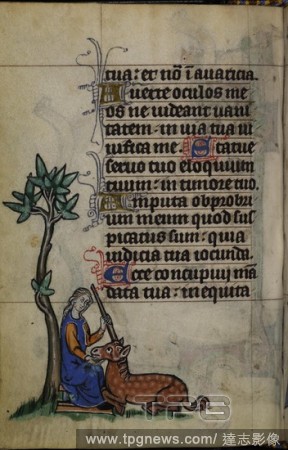 tua: et nō ī avaricia.
Averte oculos me
os ne videant vani
tatem: in via tua vi
vifica me. Statue
servo tuo eloquium
tuum: in timore tuo.
Amputa obprobri
um meum quod sus
picatus sum: quia
iudicia tua iocunda.
Ecce concupivi mā
data tua: in equita
TPG
www.tpgnews.com/達志影像